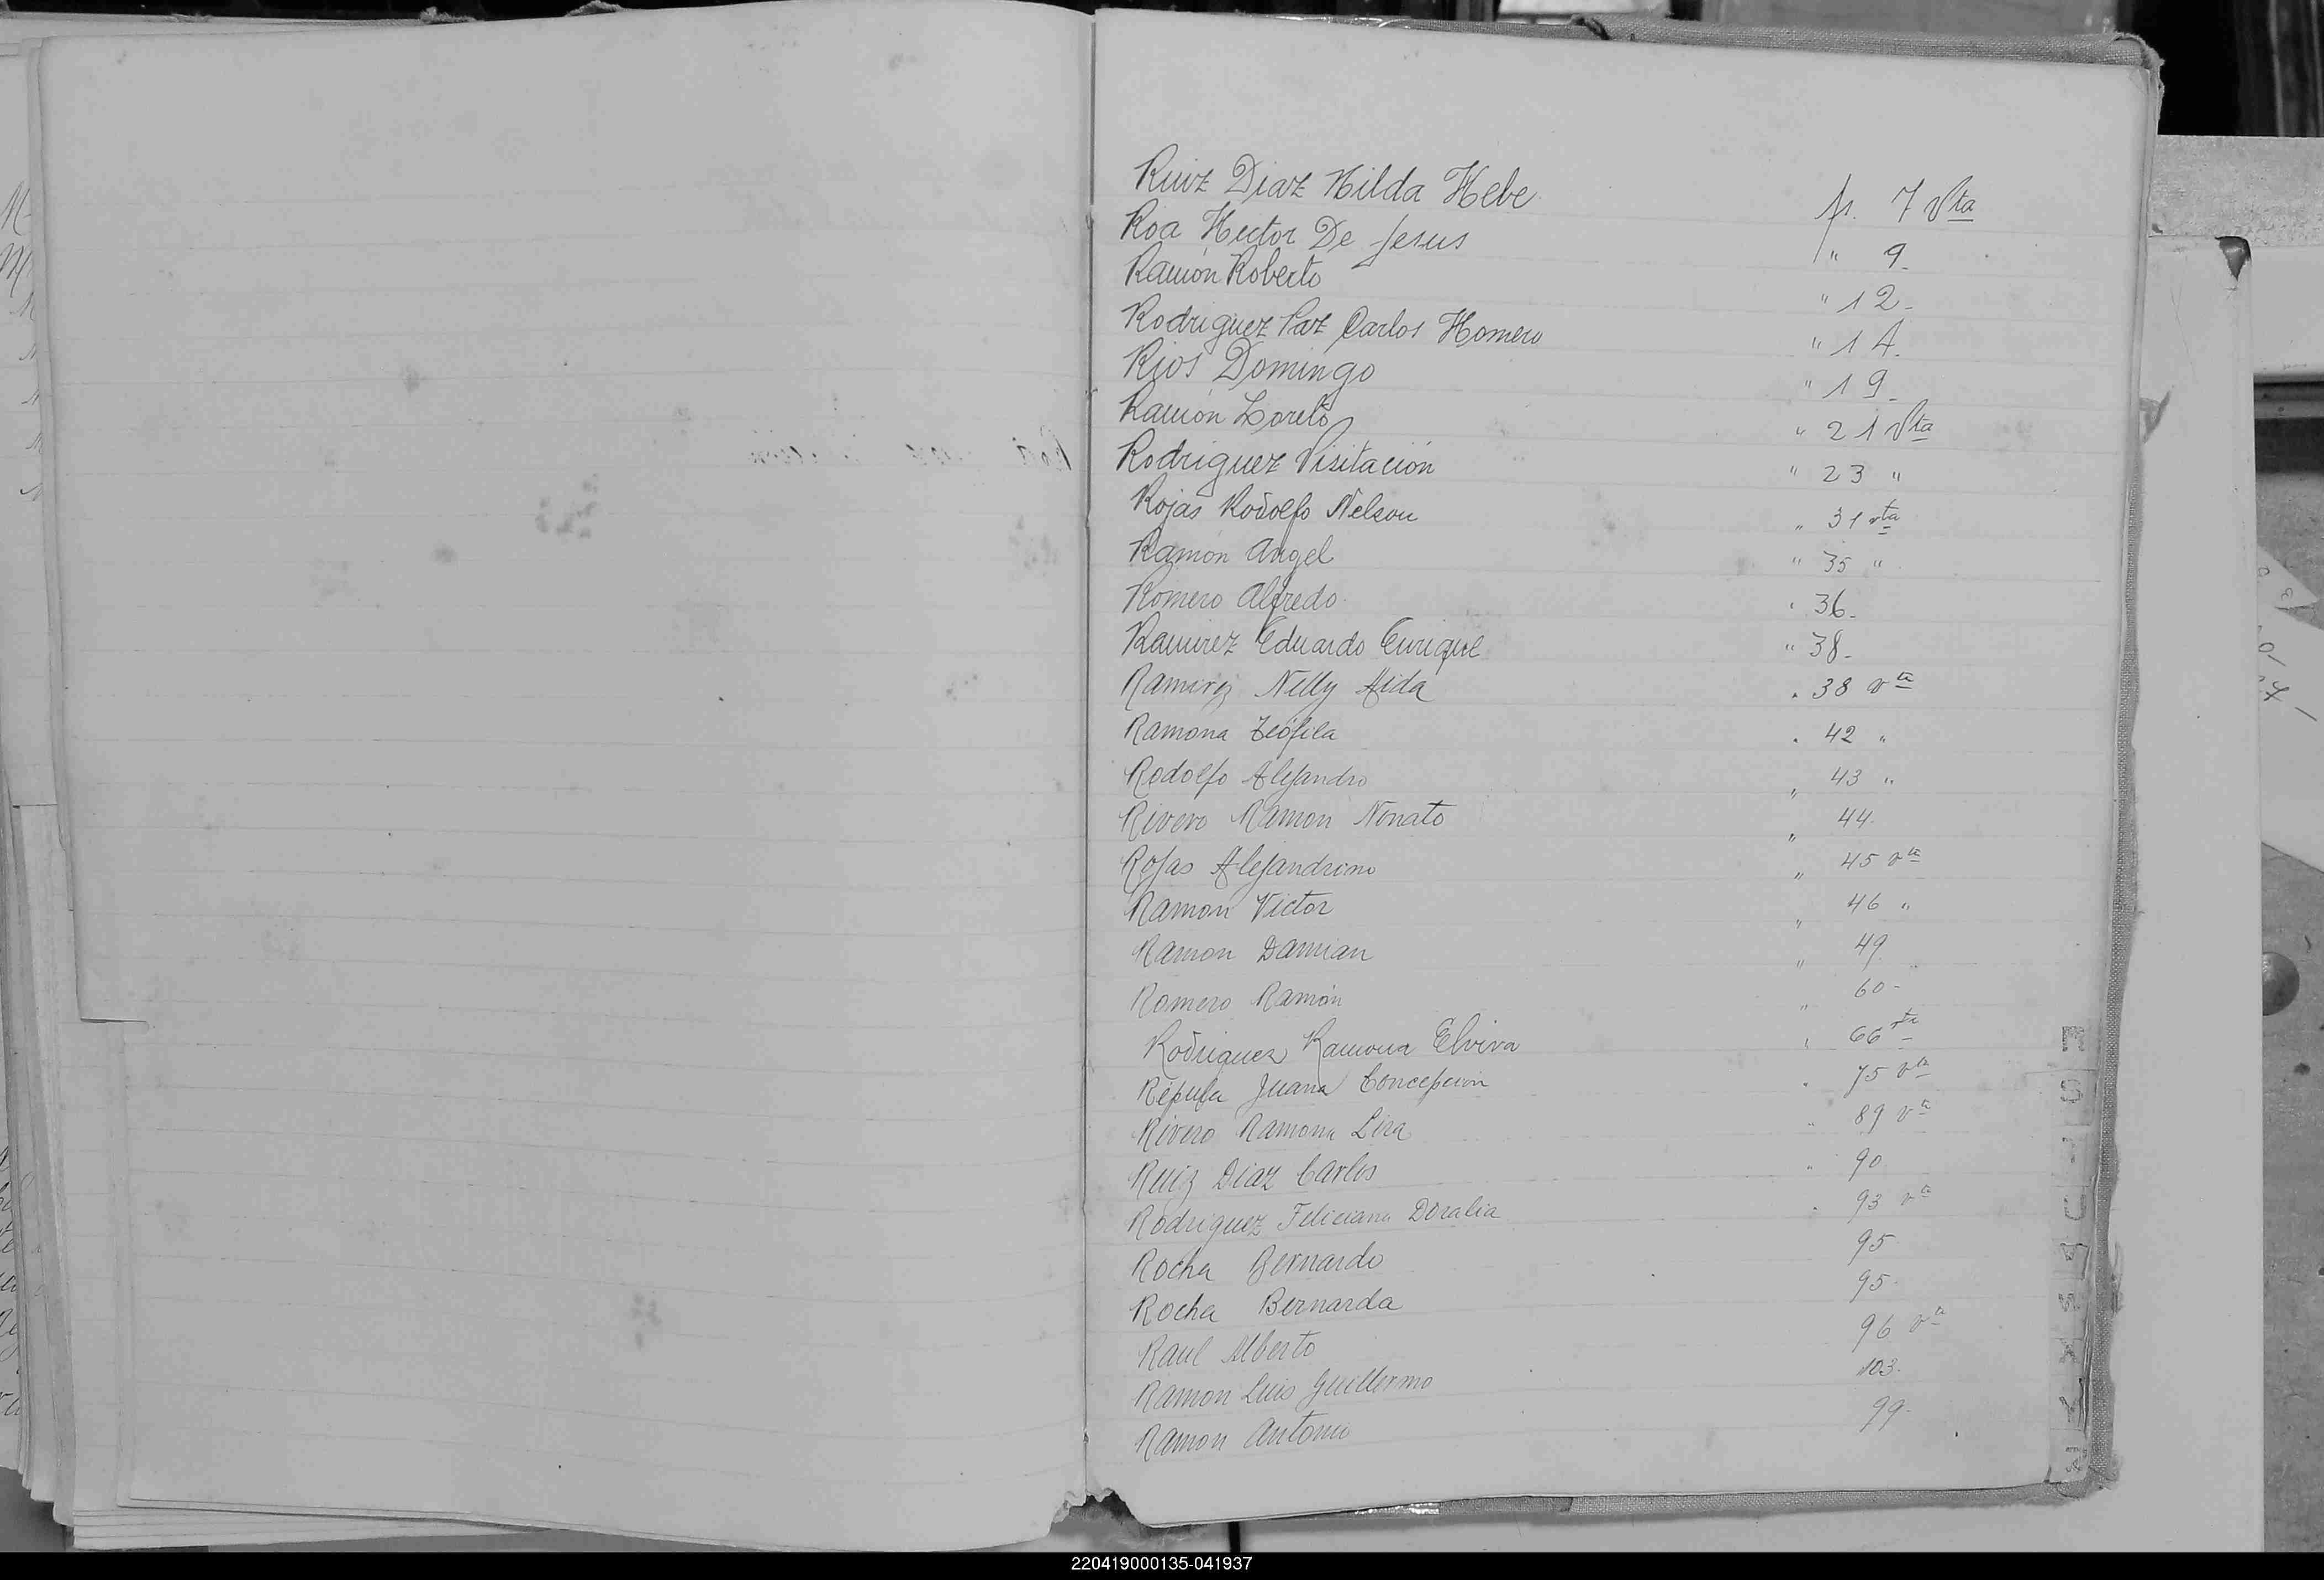 Ruiz Diaz Hilda Hebe fs. 7 Vta
Roa Hector De Jesus " 9-
Ramón Roberto " 12-
Rodriguez Paz Carlos Homero " 14-
Rios Domingo " 19-
Ramón Loreto " 21 Vta
Rodriguez Visitación " 23 "
Rojas Rodolfo Nelson " 31 vta
Ramón Angel " 35 "
Romero Alfredo " 36-
Ramirez Eduardo Enrique " 38-
Ramirez Nelly Aida " 38 vta
Ramona Teófila " 42 "
Rodolfo Alejandro " 43 "
Rivero Ramon Nonato " 44
Rojas Alejandrino " 45 vta
Ramon Victor " 46 "
Ramon Damian " 49
Romero Ramón " 60-
Rodriguez Ramona Elvira " 66 vta
Juana Concepción " 75 vta
Rivero Ramona " 89 vta
Ruiz Diaz Carlos " 90
Rodriguez Feliciana Doralia " 93 vta
Rocha Bernardo 95
Rocha Bernarda 95-
Raul Alberto 96 vta
Ramon Luis Guillermo 103-
Ramon Antonio 99-
220419000135-041937